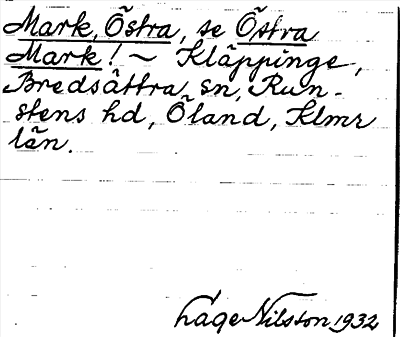 Mark, Östra, se Östra
Mark! ~ Kläppinge,
Bredsättra sn, Run-
stens hd, Öland, Klmr
län.
Lage Nilsson 1932